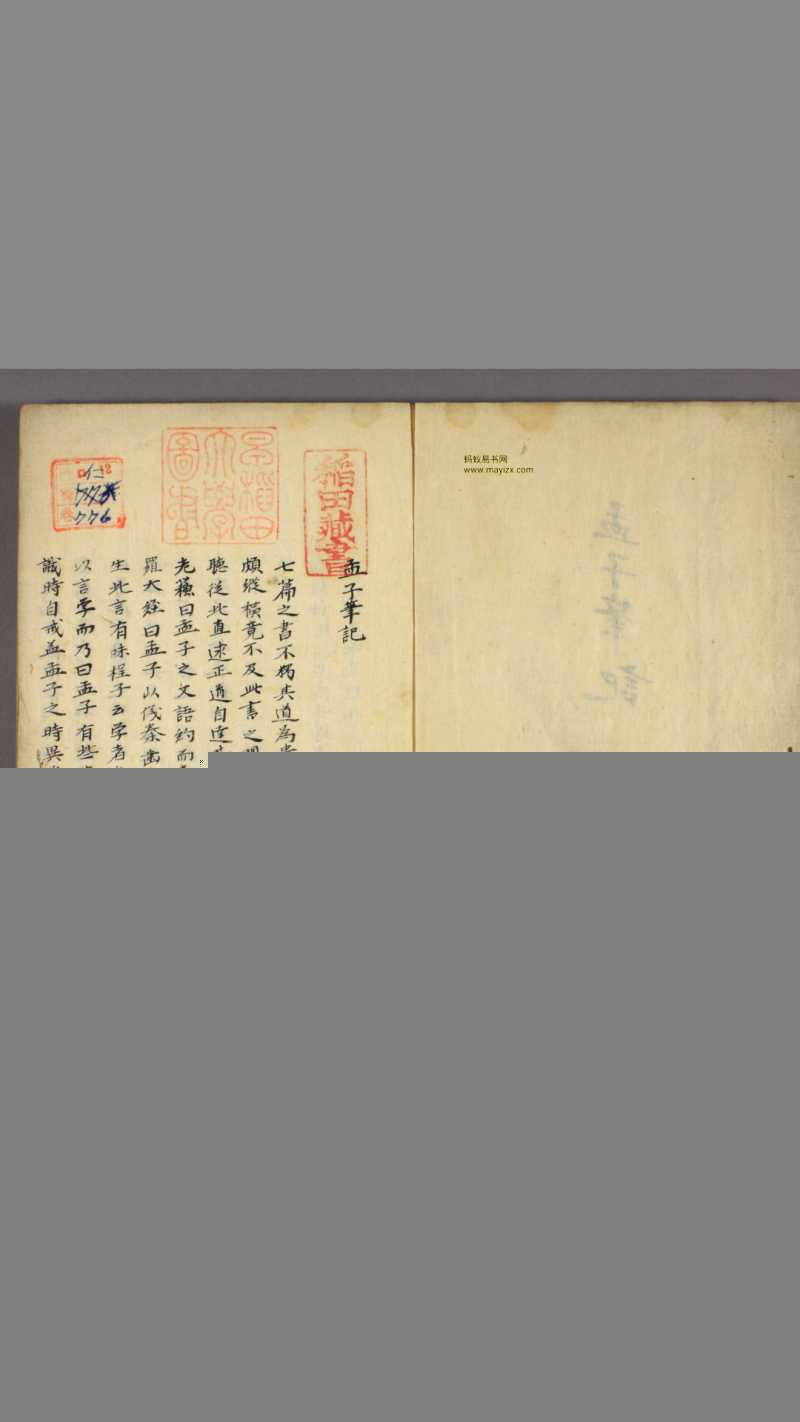 蚂蚁易书网
www.mayizx.com
孟子筆記
稲田藏書
早稲田
大學
圖書
孟子筆記
七篇之書不獨其道為
頗縱橫竟不及此書之
聽從此直逹正道自
老蘓曰孟子之文語約而
羅大經曰孟子以伐秦
生此言有味程子云学者
以言学而乃曰孟子有些
識時自戒盖孟子之時異
776